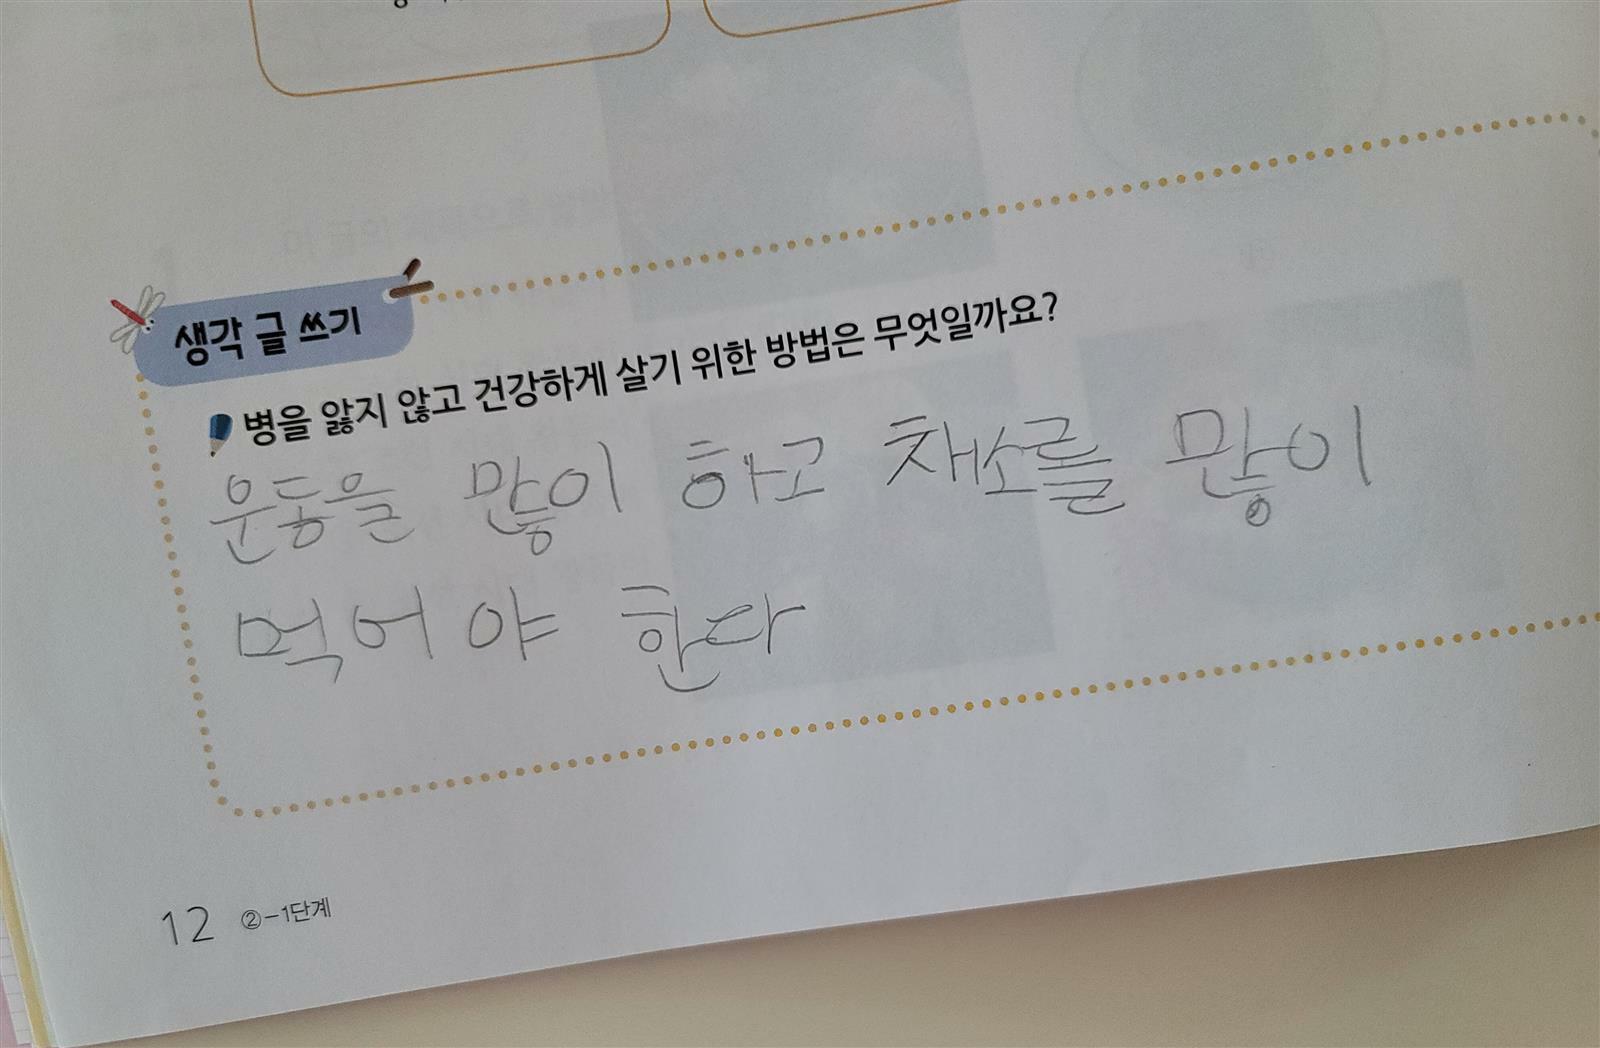 생각 글 쓰기
병을 앓지 않고 건강하게 살기 위한 방법은 무엇일까요?
운동을 많이 하고 채소를 많이
먹어야 한다
12 ②-1단계